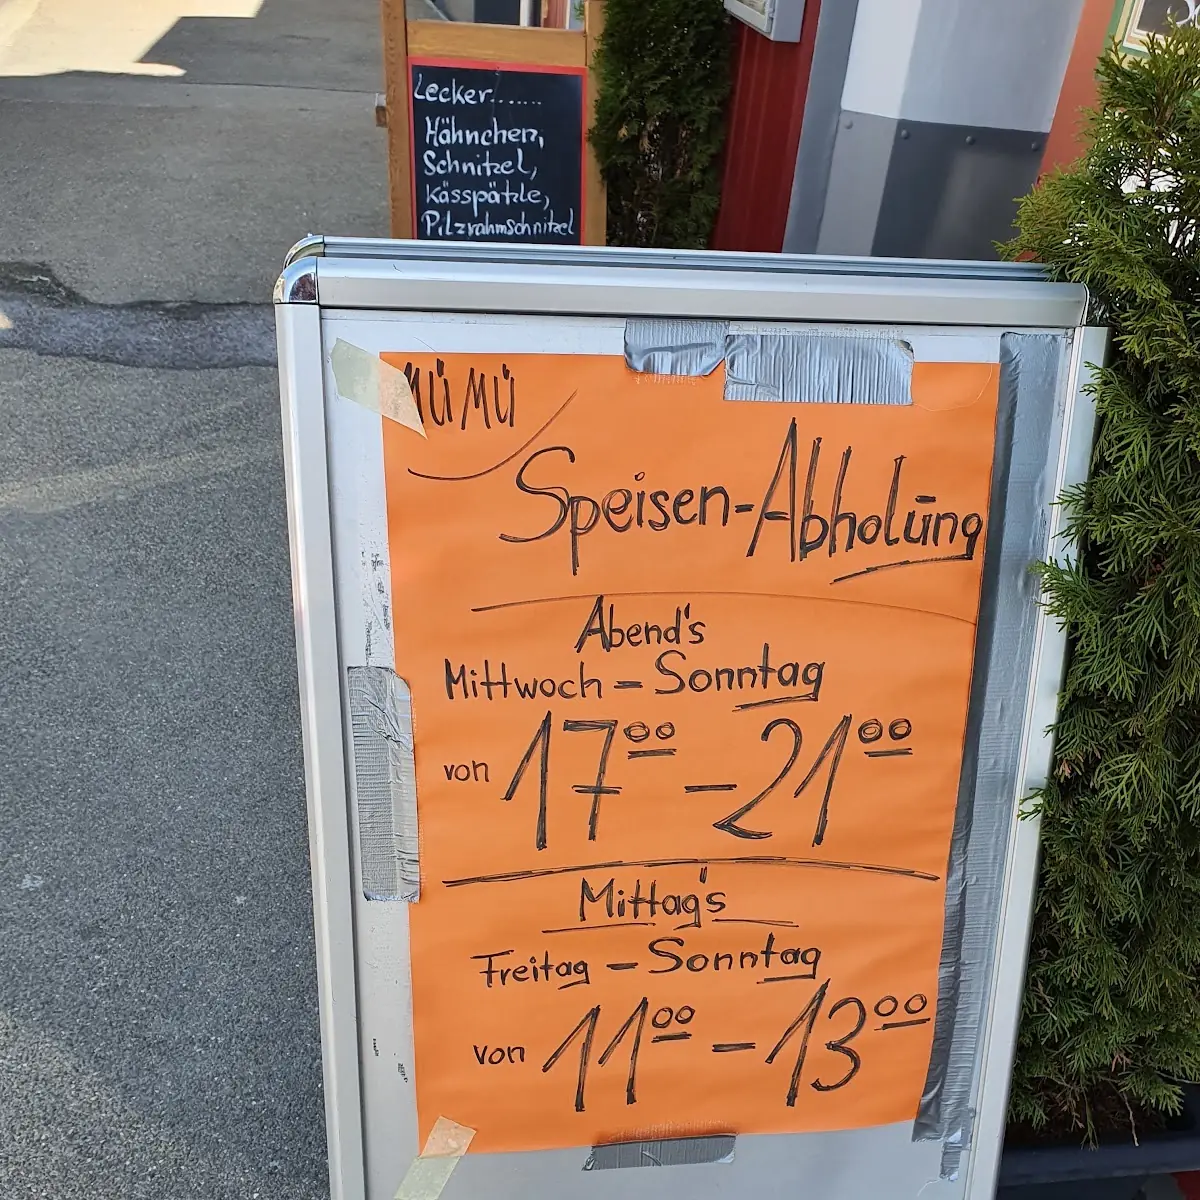 Lecker.......
Hähnchen,
Schnitzel,
Kässpätzle,
Pilzrahmschnitzel
MÜMÜ
Speisen-Abholūng
Abend's
Mittwoch - Sonntag
von 17⁰⁰ - 21⁰⁰
Mittag's
Freitag - Sonntag
von 11⁰⁰ - 13⁰⁰